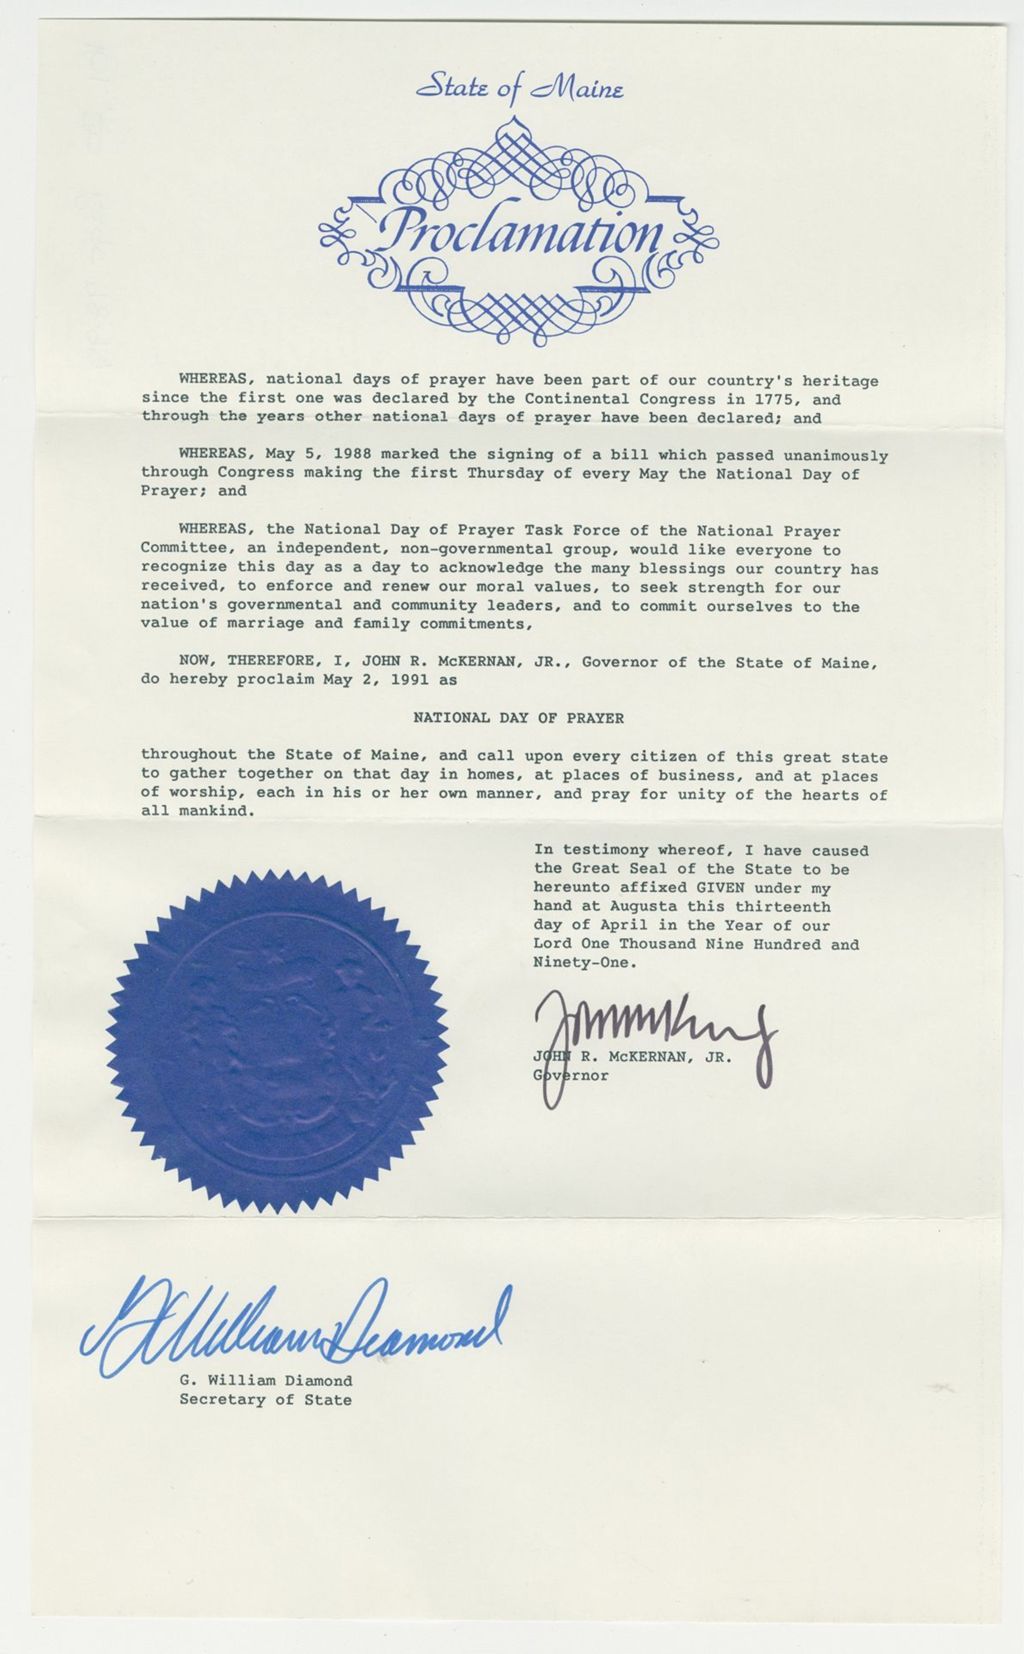 State of Maine
Proclamation
WHEREAS, national days of prayer have been part of our country's heritage
since the first one was declared by the Continental Congress in 1775, and
through the years other national days of prayer have been declared; and
WHEREAS, May 5, 1988 marked the signing of a bill which passed unanimously
through Congress making the first Thursday of every May the National Day of
Prayer; and
WHEREAS, the National Day of Prayer Task Force of the National Prayer
Committee, an independent, non-governmental group, would like everyone to
recognize this day as a day to acknowledge the many blessings our country has
received, to enforce and renew our moral values, to seek strength for our
nation's governmental and community leaders, and to commit ourselves to the
value of marriage and family commitments,
NOW, THEREFORE, I, JOHN R. McKERNAN, JR., Governor of the State of Maine,
do hereby proclaim May 2, 1991 as
NATIONAL DAY OF PRAYER
throughout the State of Maine, and call upon every citizen of this great state
to gather together on that day in homes, at places of business, and at places
of worship, each in his or her own manner, and pray for unity of the hearts of
all mankind.
In testimony whereof, I have caused
the Great Seal of the State to be
hereunto affixed GIVEN under my
hand at Augusta this thirteenth
day of April in the Year of our
Lord One Thousand Nine Hundred and
Ninety-One.
JOHN R. McKERNAN, JR.
Governor
G William Diamond
G. William Diamond
Secretary of State